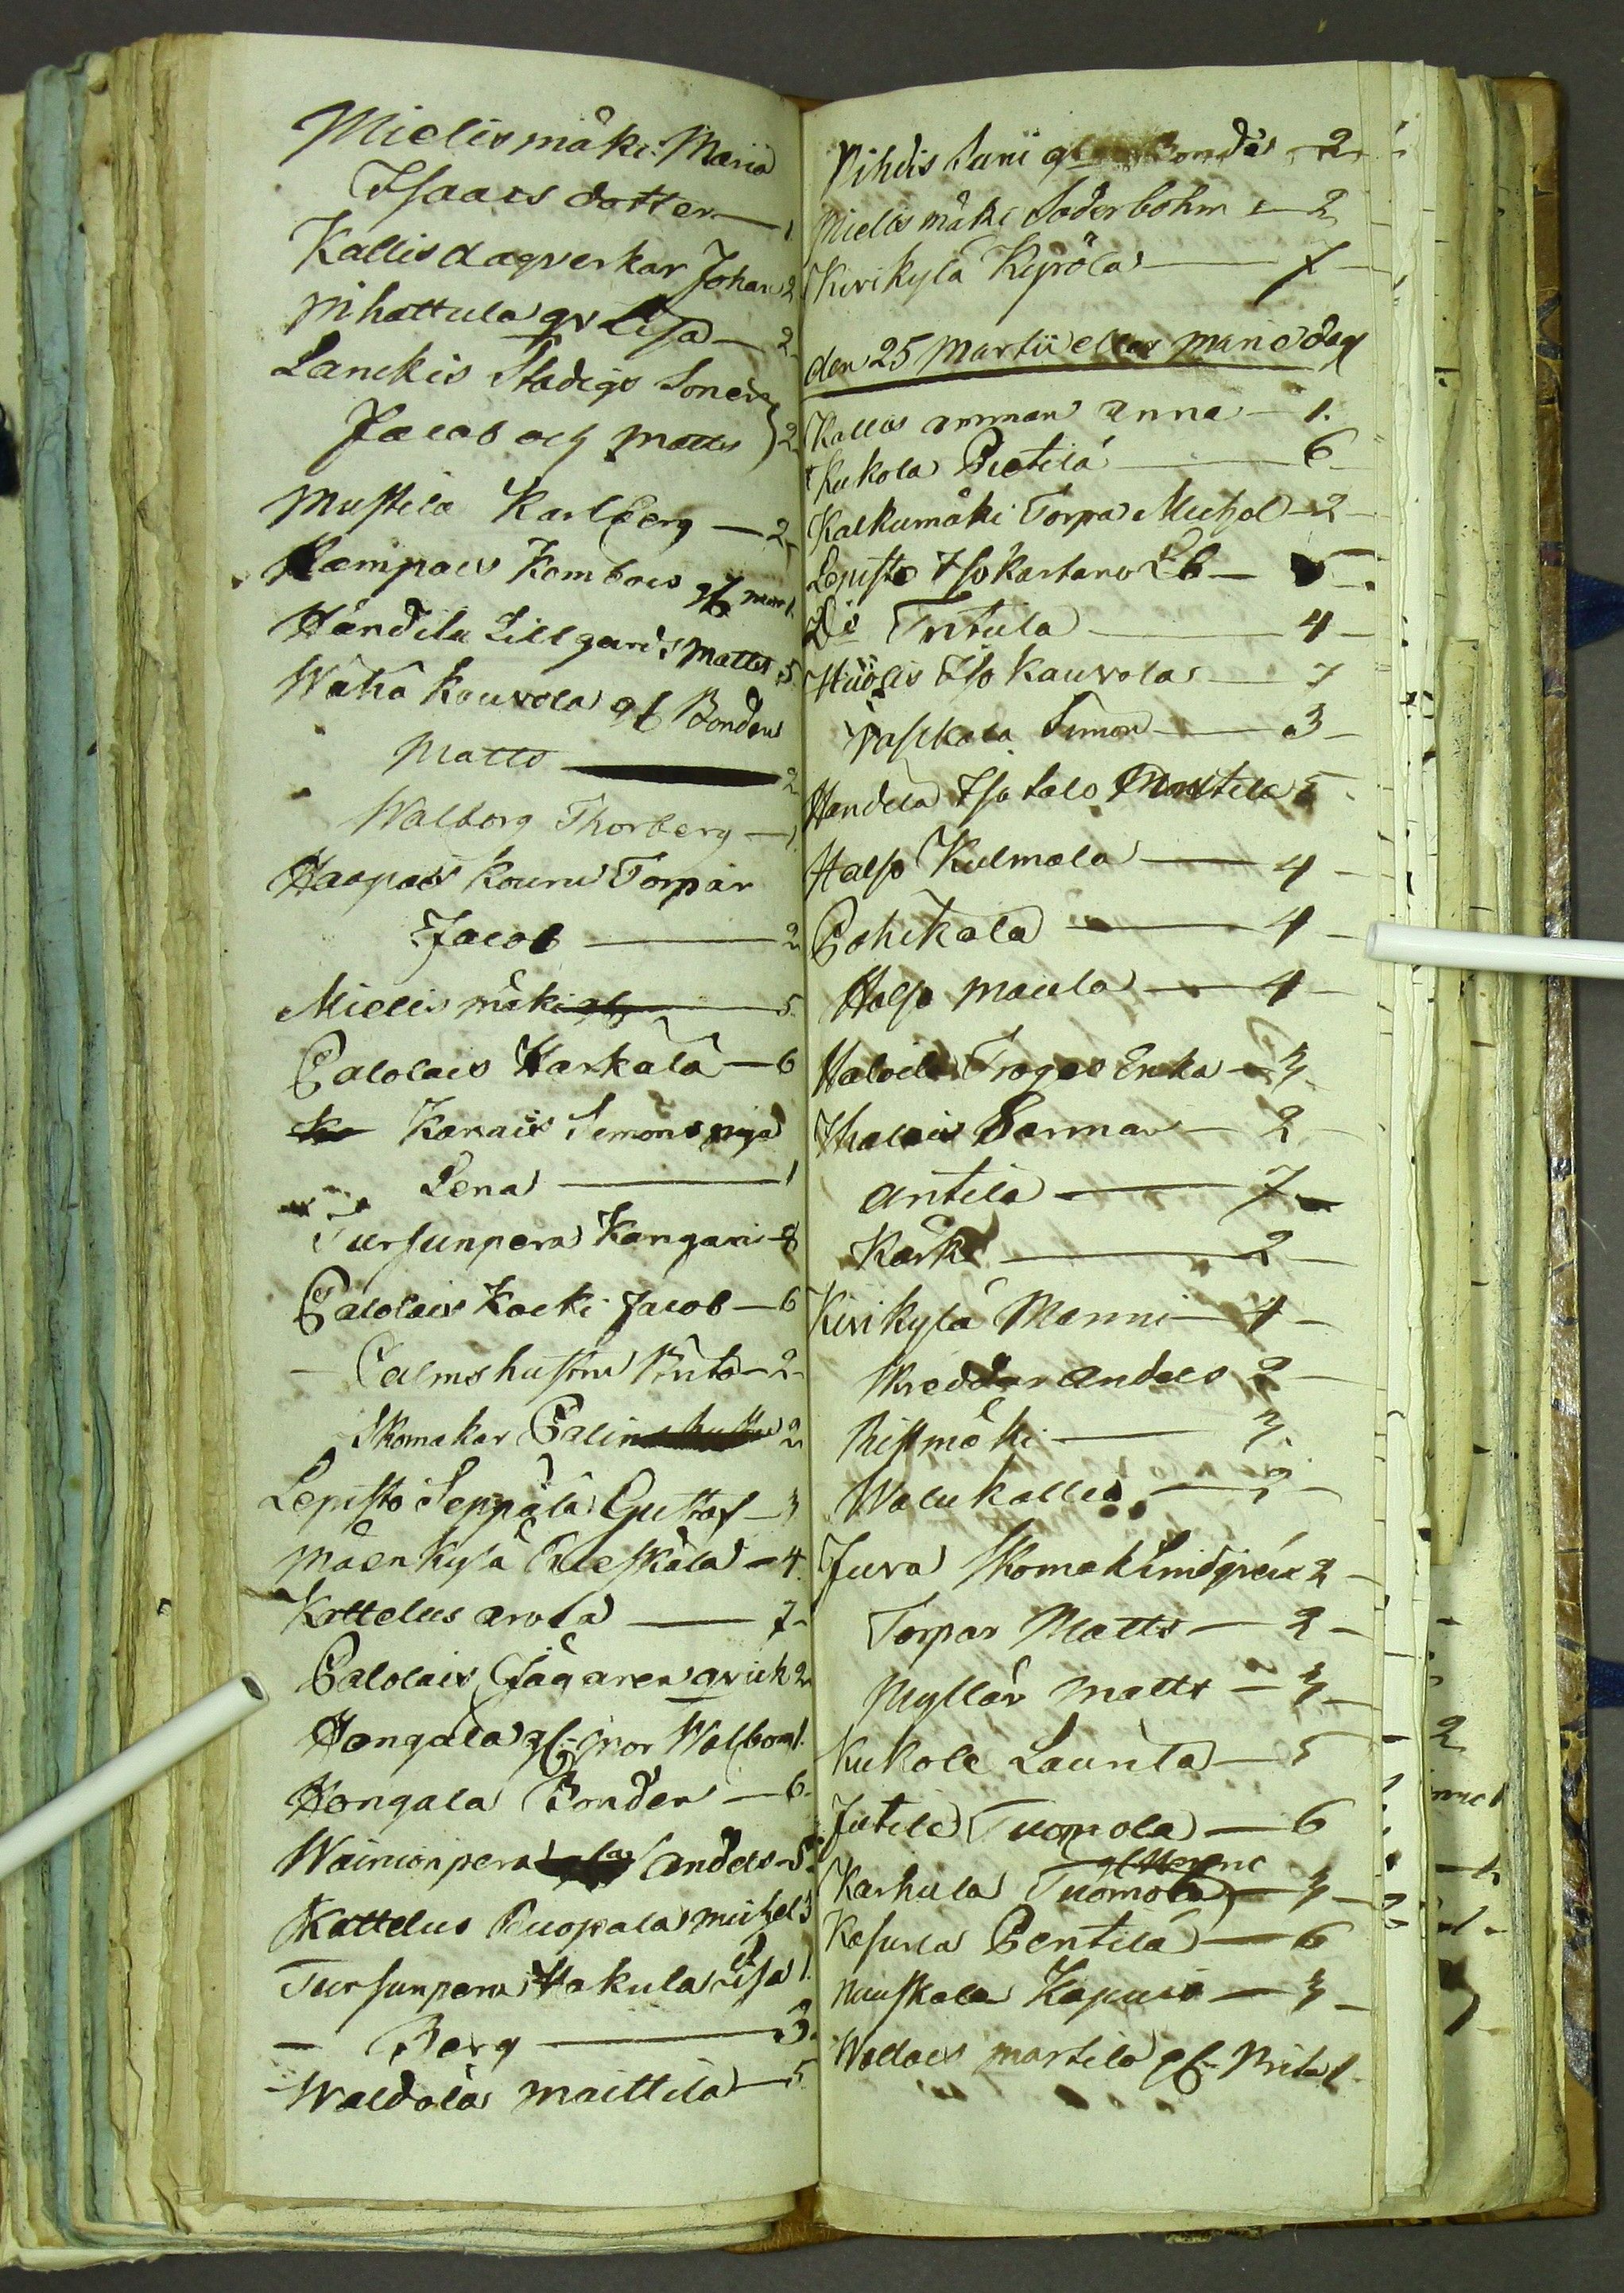 Mielismäki Maria
Isaacs dotter — 1
Kallis dagverkar Johan 2
Pihattula qv Lisa — 2
Lanckis Stadigs Soner
Jacob och Matts } 2
Mustila Karlberg — 2
Kempaes Kembaes gl mor 1
Händilä Lillgard Matts 5
Wähä Kouvola gl Bonden
Matts — 2
Walborg Thorberg — 1
Haapais Kouru Torpar
Jacob — 2
Mielismäki — 5
Palolais Harkälä — 6
Karais Simons piga
Lena — 1
Tursunperä Kangari — 8
Palolais Kocki Jacob — 6
— Palms hustru Brita — 2
Skomakar Palin 2
Lepistö Seppälä Gustaf — 3
Mäenkylä Pueskälä — 4
Kettelus arola — 7
Palolais Jägaren 2
Hongala gl mor Walborg 1.
Hongala Bonden — 6
Wäiniönperä Anders — 5
Kattelus Puopala Michel 3
Tursunpera Hakula Lisa 1
— Berg — 3.
Waldola Maittila — 5
Pihlis Suni gl Bondas — 2
Mielismäki Söderbohm — 2
Kirikylä Kyrölä — 7
den 25 Martii eller Marie dag
Kallis amman Anna — 1.
Kukola Pietilä — 6
Kalkumäki Torpar Michel — 2
Lepistö Iso Kartano — 5
Do Tritula — 4
Hüölis Iso Kauvola — 7
Paskala Simon — 3
Handela Iso talo Manttila 5
Halso Kulmala — 4
Pohikala — 4
Halso Maula — 4
Haloila Troges Enka — 3
Ihalais Sanna — 2
Antila — 7
Kärki — 2
Kirikylä Manni — 4
Skreddar Anders 2
Ristmäki — 3
Walukallio — 2
Juva Skomak Lindgrén 2
Torpar Matts — 2
Myllär Matts — 3
Kukola Launla — 5
Jutila Tuomola — 6
Karhula Tuomola — 3
Kasurla Pentilä — 6
Nuuskala Kapuis — 3
Wallais Martila gl Brita 1